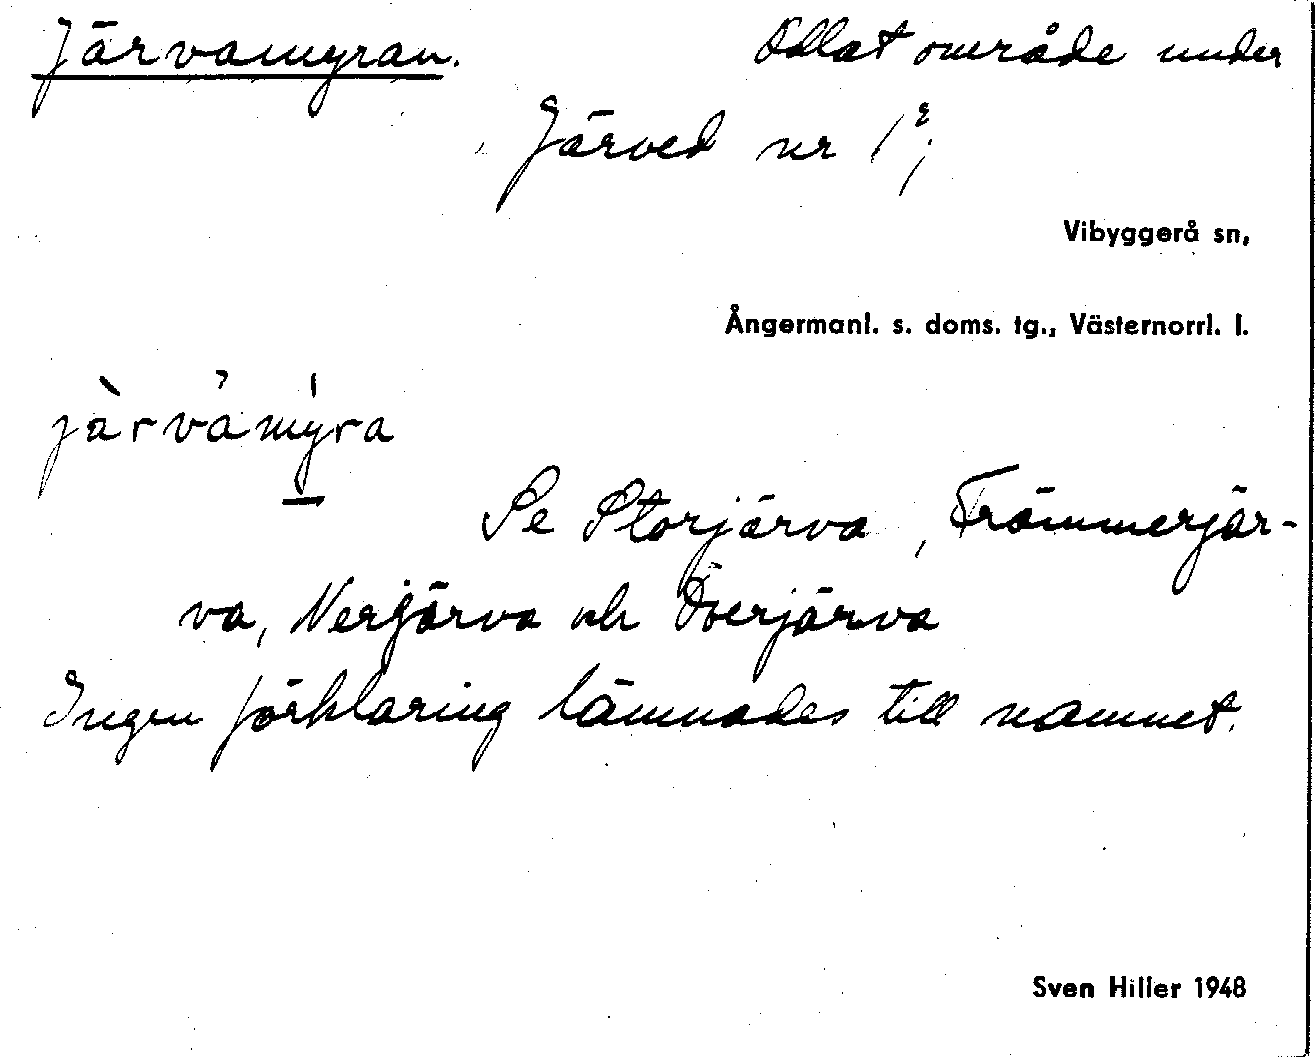 Järvamyran. Odlat område under
Järved nr 1²;
Vibyggerå sn,
Ångermanl. s. doms. tg., Västernorrl. l.
järvamyra
Se Storjärva, Främmerjär-
va, Nerjärva och Överjärva
Ingen förklaring lämnades till namnet.
Sven Hiller 1948